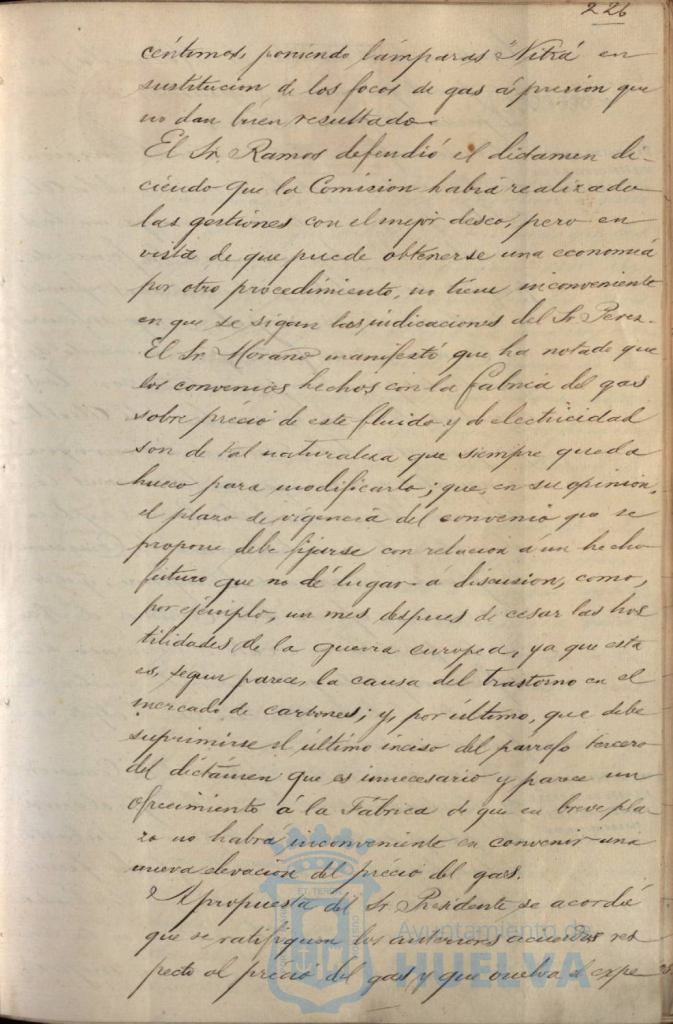 226
céntimos, poniendo lámparas "Nitra" en
sustitucion de los focos de gas á presion que
no dan buen resultado.
El Sr. Ramos defendió el dictamen di-
ciendo que la Comision habia realizado
las gestiones con el mejor deseo, pero en
vista de que puede obtenerse una economia
por otro procedimiento, no tiene inconveniente
en que se sigan las indicaciones del Sr. Perez.
El Sr. Morano manifestó que ha notado que
los convenios hechos con la fabrica del gas
sobre précio de este fluido y de electricidad
son de tal naturaleza que siempre queda
hueco para modificarlo; que, en su opinión,
el plazo de vigencia del convenio que se
propone debe fijarse con relacion á un hecho
futuro que no dé lugar á discusion, como,
por ejemplo, un mes despues de cesar las hos
tilidades de la guerra europea, ya que esta
es, segun parece, la causa del trastorno en el
mercado de carbones; y, por último, que debe
suprimirse el último inciso del parrafo tercero
del dictámen que es innecesario y parece un
ofrecimiento á la Fábrica de que en breve pla-
zo no habra inconveniente en convenir una
nueva elevacion del précio del gas.
A propuesta del Sr. Presidente se acordó
que se ratifiquen los anteriores acuerdos res
pecto al précio del gas y que vuelva el expe
Ayuntamiento de
HUELVA